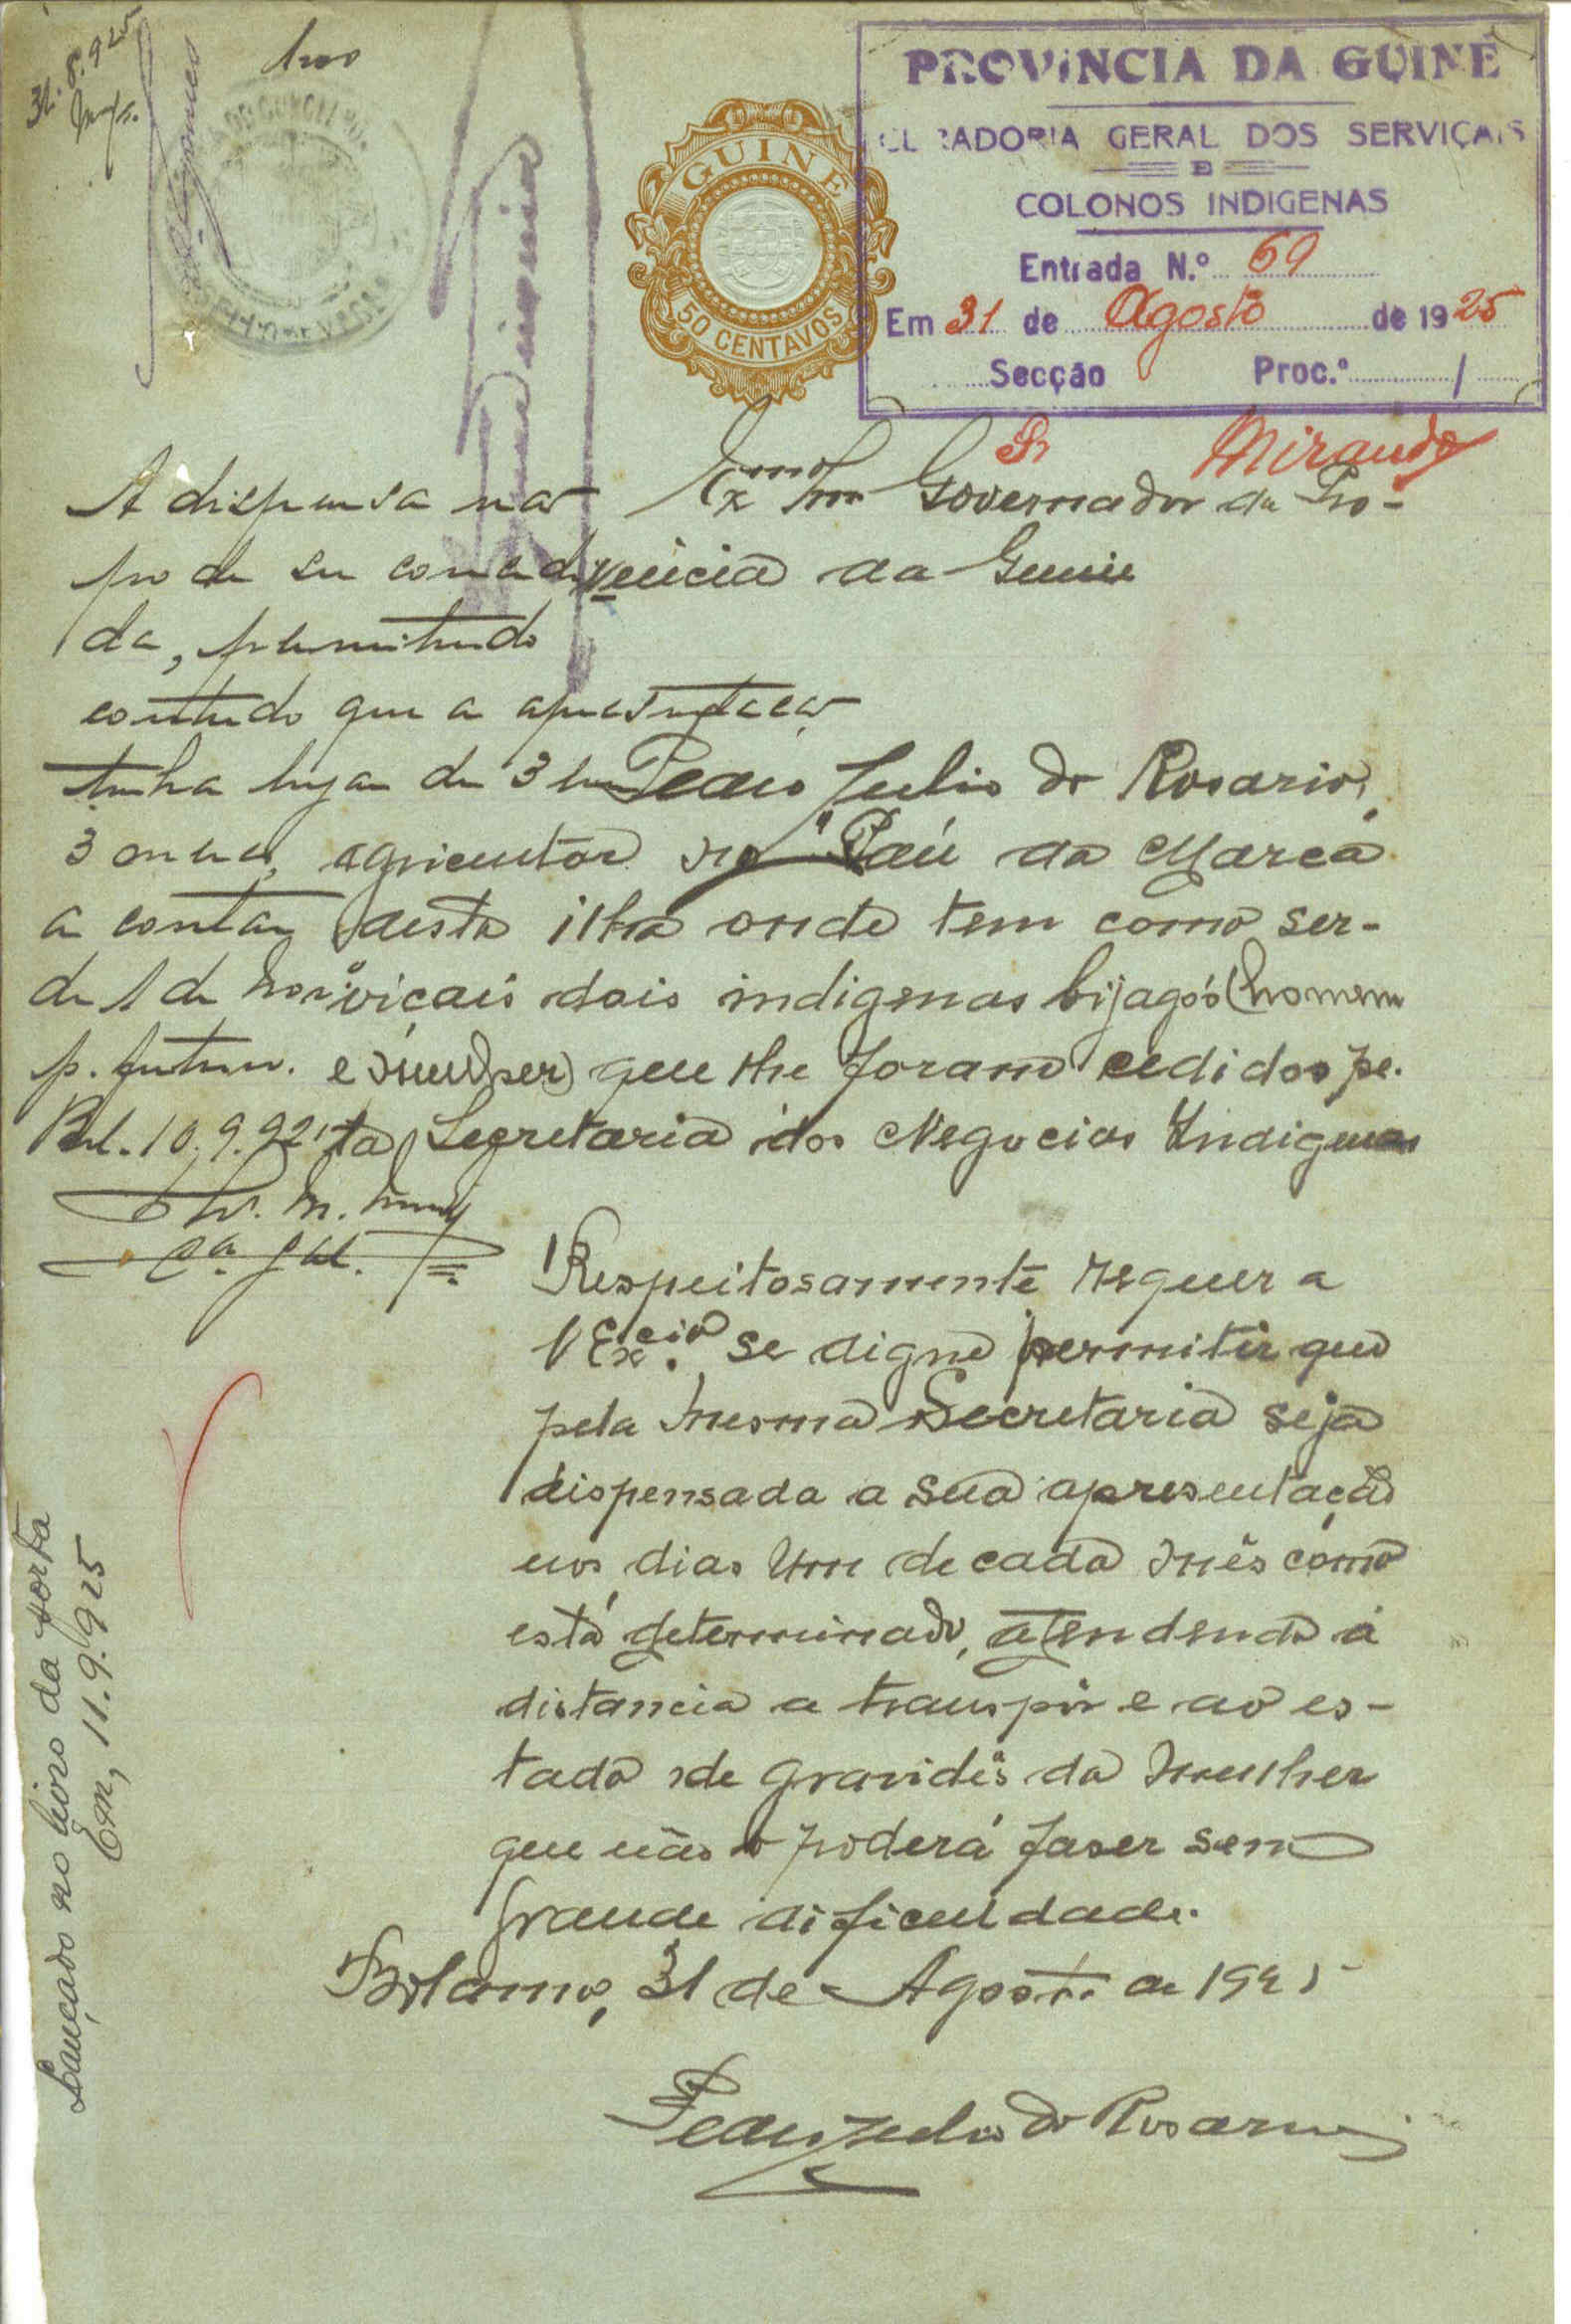 31.8.925
PROVINCIA DA GUINÉ
CURADORIA GERAL DOS SERVIÇAIS
E
COLONOS INDIGENAS
Entrada N.º 69
Em 31 de Agosto de 1925
Secção Proc.º /
GUINÉ
50 CENTAVOS
Sr Miranda
Exmo Snr Governador da Pro-
vincia da Guiné
A dispensa não
pode ser concedi
da, permitindo
contudo que a apresentação
tenha lugar de 3 em
3 meses,
a contar
de 1 de
p. futuro.
Bol. 10.9.925
Pedro Julio do Rosario,
agricultor no "Paú da Marca
desta ilha onde tem como ser-
viçais dois indigenas bijagós (homem
e mulher) que lhe foram cedidos pe-
la Secretaria dos Negocios Indigenas
Respeitosamente requer a
V Excia. se digne permitir que
pela mesma Secretaria seja
dispensada a sua apresentação
nos dias um de cada mês como
está determinado, atendendo á
distancia a transpôr e ao es-
tado de gravidês da mulher
que não o poderá faser sem
grande dificuldade.
Bolama, 31 de Agosto de 1925
Pedro Julio do Rosario
Lançado no livro da porta
Em, 11.9.925